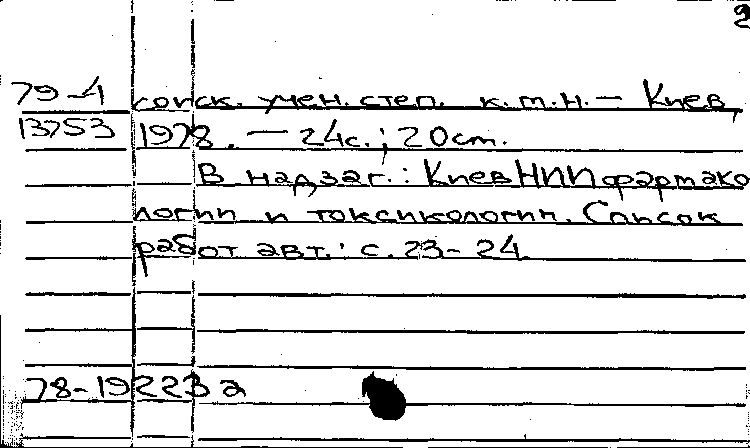 2
79-4 соиск. учен. степ. к.м.н. — Киев,
13753 1978. — 24с.; 20см.
В надзаг.: Киев НИИ фармако
логии и токсикологии. Список
работ авт.: с. 23-24.
78-19223а